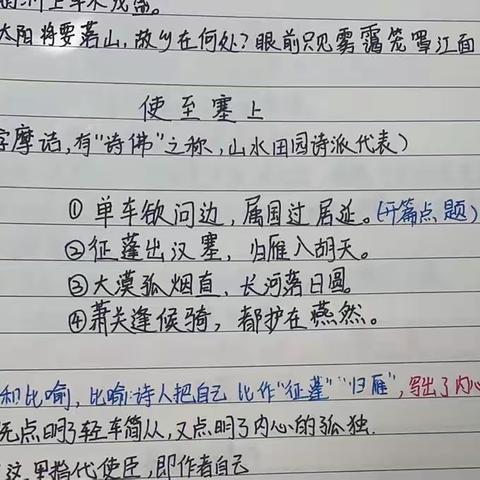 洲上草木茂盛。
太阳将要落山,故乡在何处?眼前只见雾霭笼罩江面
使至塞上
字摩诘,有"诗佛"之称,山水田园诗派代表)
①单车欲问边,属国过居延。(开篇点题)
②征蓬出汉塞,归雁入胡天。
③大漠孤烟直,长河落日圆。
④萧关逢候骑,都护在燕然。
和比喻,比喻:诗人把自己比作"征蓬""归雁",写出了内心
点明了轻车简从,又点明了内心的孤独.
这里指代使臣,即作者自己